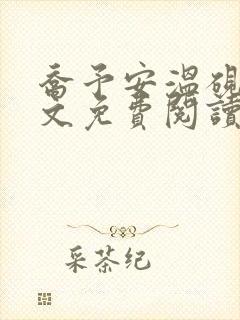 喬予安溫硯
文免費閱讀
采茶纪